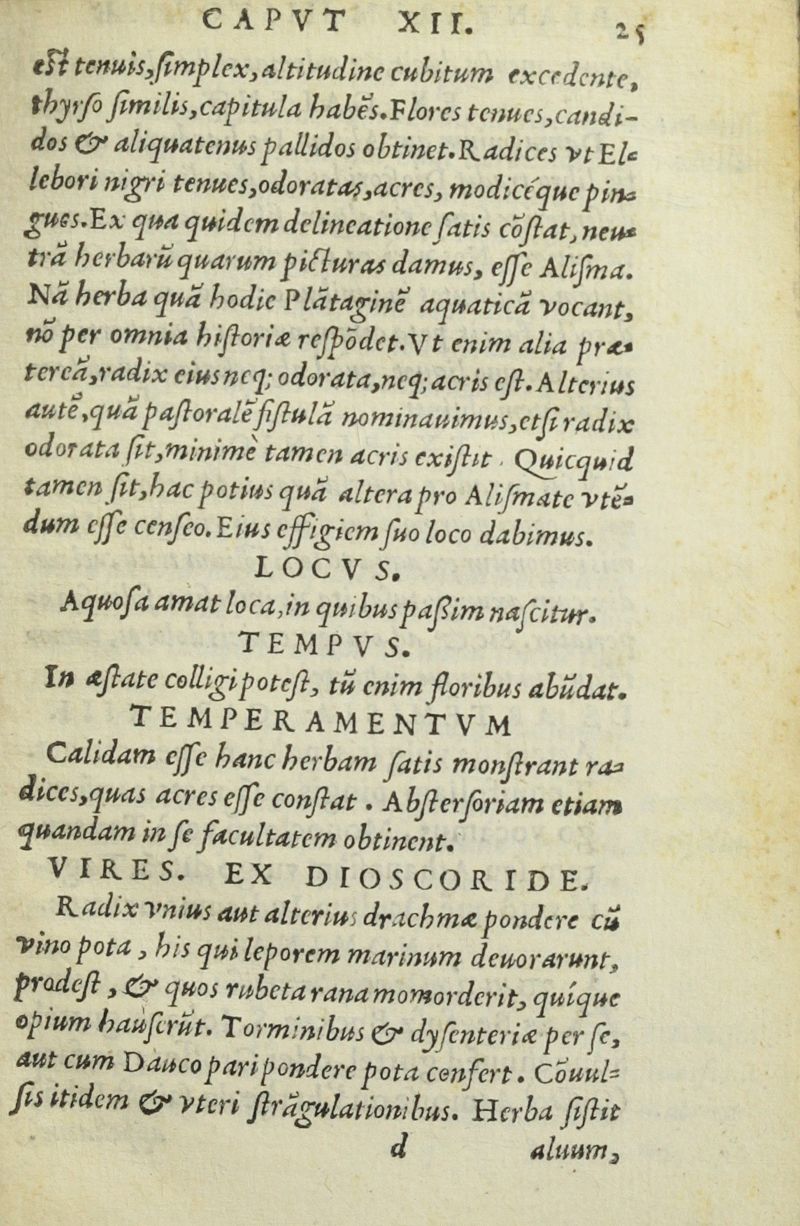 CAPVT XII. 25
est tenuis,ſimplex,altitudine cubitum excedente,
thyrſo ſimilis,capitula habẽs.Flores tenues,candi-
dos & aliquatenus pallidos obtinet.Radices vt El-
lebori nigri tenues,odoratas,acres, modicéque pin-
gues.Ex qua quidem delineatione ſatis cõſtat, neu-
trã herbarũ quarum picturas damus, eſſe Aliſma.
Nã herba quã hodie Plãtaginẽ aquaticã vocant,
nõ per omnia hiſtoriæ reſpõdet.Vt enim alia præ-
tereã,radix eius neq; odorata,neq; acris eſt. Alterius
autẽ,quã paſtoralẽ fiſtulã nominauimus,etſi radix
odorata ſit,minimè tamen acris exiſtit. Quicquid
tamen ſit,hac potius quã altera pro Aliſmate vtẽ-
dum eſſe cenſeo.Eius effigiem ſuo loco dabimus.
LOCVS.
Aquoſa amat loca,in quibus paßim naſcitur.
TEMPVS.
In æſtate colligi poteſt, tũ enim floribus abũdat.
TEMPERAMENTVM
Calidam eſſe hanc herbam ſatis monſtrant ra-
dices,quas acres eſſe conſtat . Abſterſoriam etiam
quandam in ſe facultatem obtinent.
VIRES. EX DIOSCORIDE.
Radix vnius aut alterius drachmæ pondere cũ
vino pota , his qui leporem marinum deuorarunt,
prodeſt , & quos rubeta rana momorderit, quíque
opium hauſerũt. Torminibus & dyſenteriæ per ſe,
aut cum Dauco pari pondere pota confert . Cõuul-
ſis itidem & vteri ſtrãgulationibus. Herba ſiſtit
d aluum,